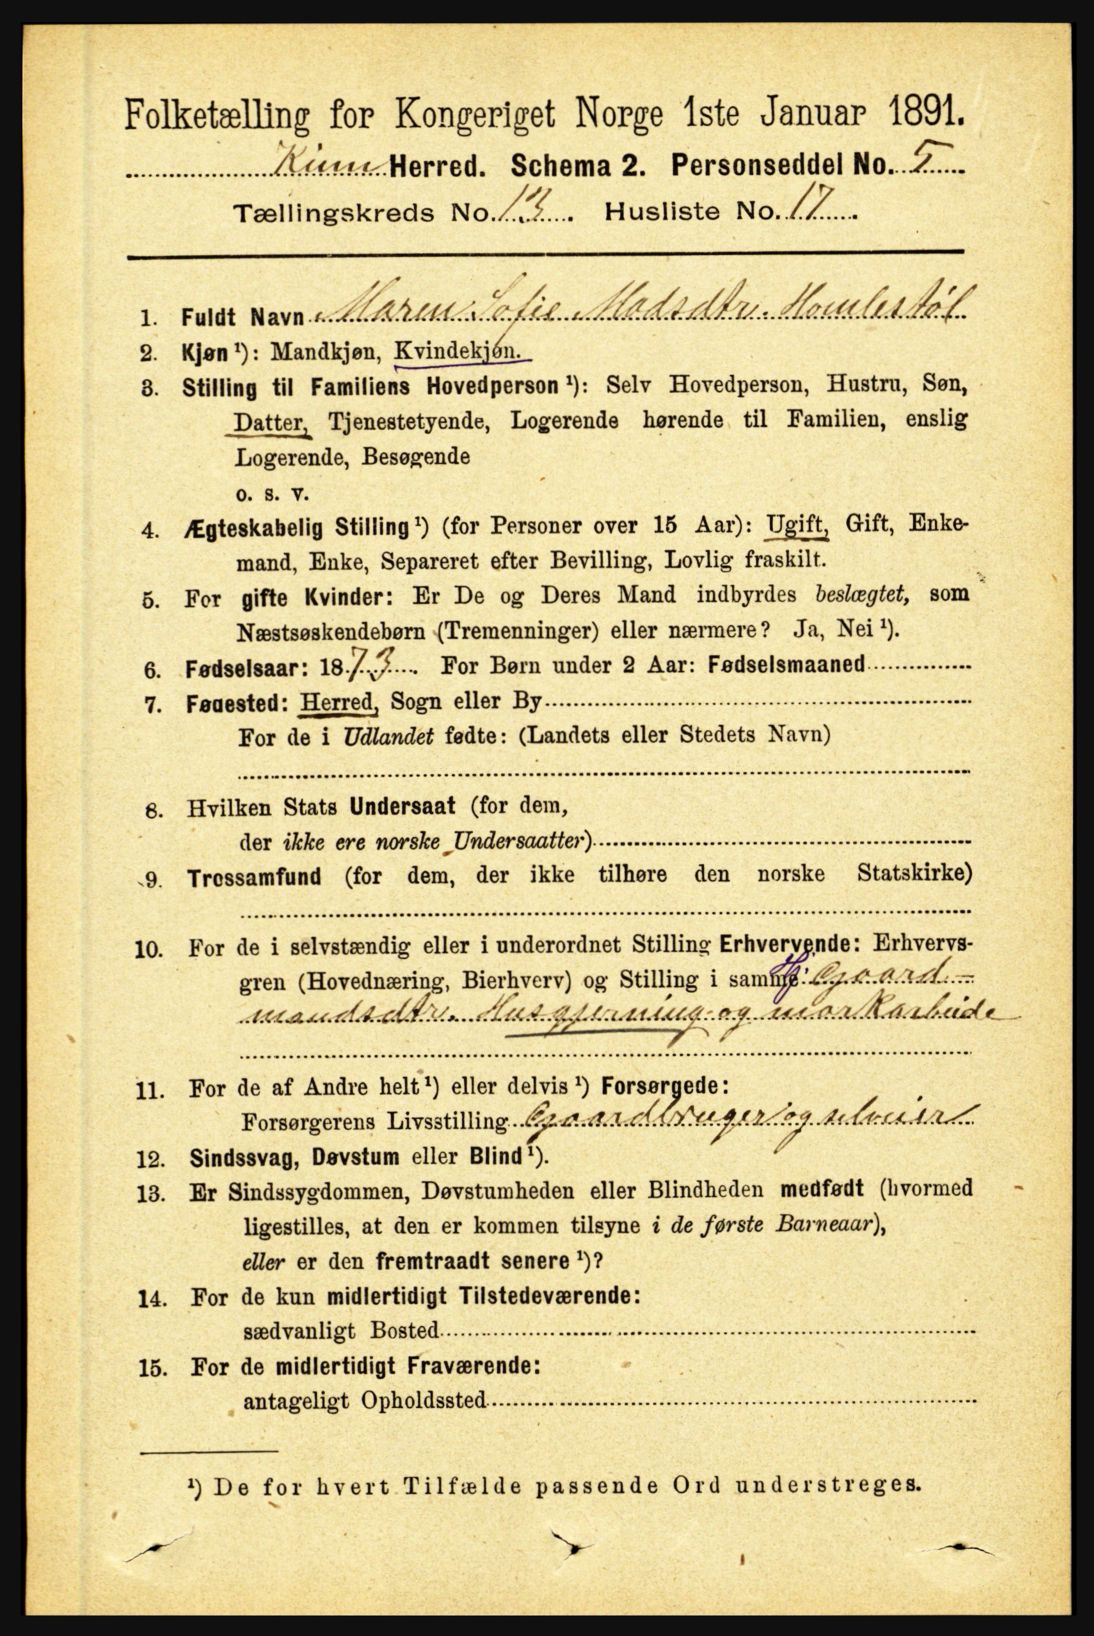 Folketælling for Kongeriget Norge 1ste Januar 1891.
Kinn Herred. Schema 2. Personseddel No. 5
Tællingskreds No. 13. Husliste No. 17.
1. Fuldt Navn Maren Sofie Madsdtr. Homlestøl
2. Kjøn ¹): Mandkjøn, Kvindekjøn.
3. Stilling til Familiens Hovedperson ¹): Selv Hovedperson, Hustru, Søn,
Datter, Tjenestetyende, Logerende hørende til Familien, enslig
Logerende, Besøgende
o. s. v.
4. Ægteskabelig Stilling ¹) (for Personer over 15 Aar): Ugift, Gift, Enke-
mand, Enke, Separeret efter Bevilling, Lovlig fraskilt.
5. For gifte Kvinder: Er De og Deres Mand indbyrdes beslægtet, som
Næstsøskendebørn (Tremenninger) eller nærmere? Ja, Nei ¹).
6. Fødselsaar: 1873. For Børn under 2 Aar: Fødselsmaaned
7. Fødested: Herred, Sogn eller By
For de i Udlandet fødte: (Landets eller Stedets Navn)
8. Hvilken Stats Undersaat (for dem,
der ikke ere norske Undersaatter)
9. Trossamfund (for dem, der ikke tilhøre den norske Statskirke)
10. For de i selvstændig eller i underordnet Stilling Erhvervende: Erhvervs-
gren (Hovednæring, Bierhverv) og Stilling i samme Hf: Gaard-
mandsdtr. Husgjerning og markarbeide
11. For de af Andre helt ¹) eller delvis ¹) Forsørgede:
Forsørgerens Livsstilling Gaardbruger og selveier
12. Sindssvag, Døvstum eller Blind ¹).
13. Er Sindssygdommen, Døvstumheden eller Blindheden medfødt (hvormed
ligestilles, at den er kommen tilsyne i de første Barneaar),
eller er den fremtraadt senere ¹)?
14. For de kun midlertidigt Tilstedeværende:
sædvanligt Bosted
15. For de midlertidigt Fraværende:
antageligt Opholdssted
¹) De for hvert Tilfælde passende Ord understreges.